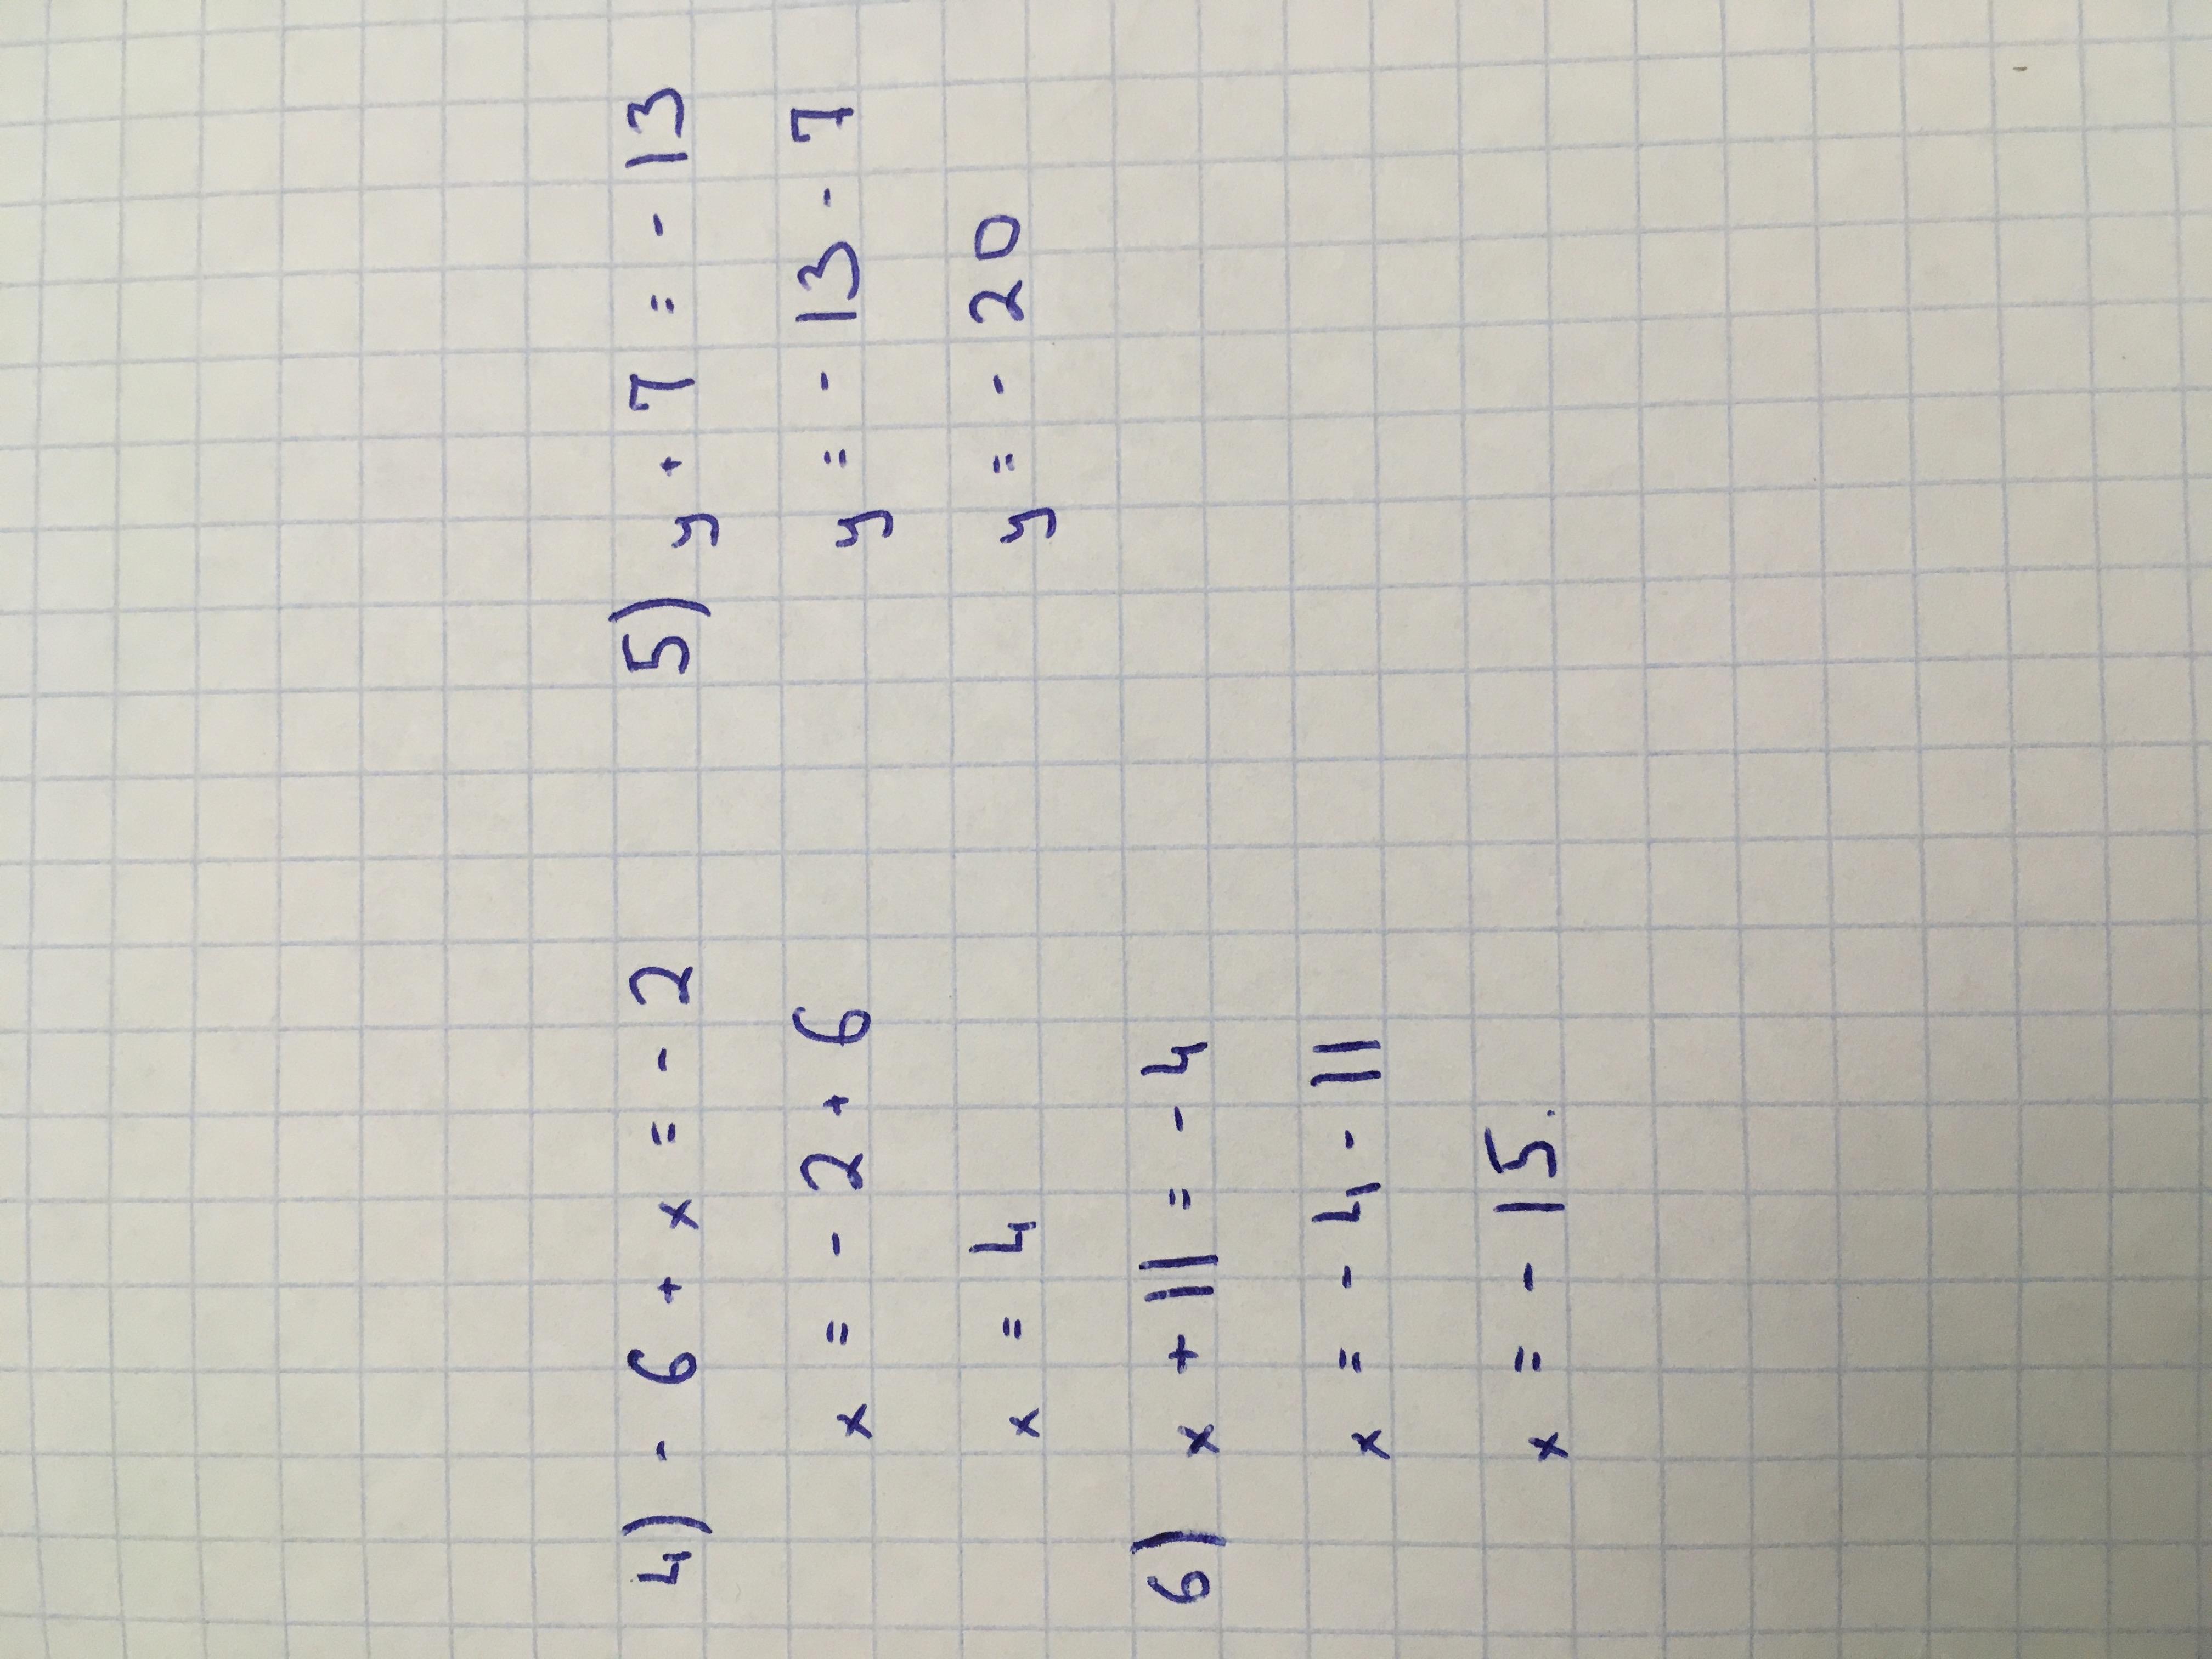 4) - 6 + x = - 2
x = - 2 + 6
x = 4
5) y + 7 = - 13
y = - 13 - 7
y = - 20
6) x + 11 = - 4
x = - 4 - 11
x = - 15.